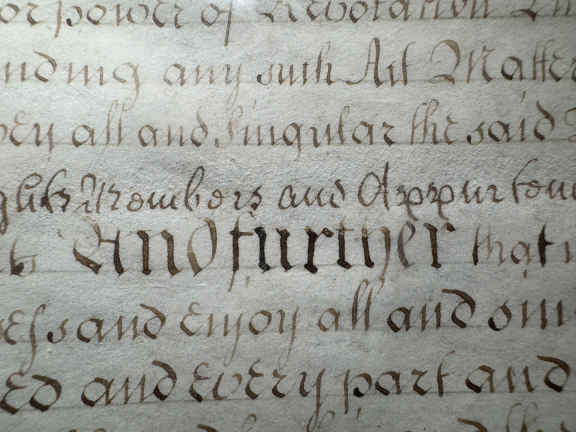 or power of Revocation
nding any such Act Matter
all and Singular the said
ghts Members and Appurten
And further that
ess and enjoy all and sin
ed and every part and